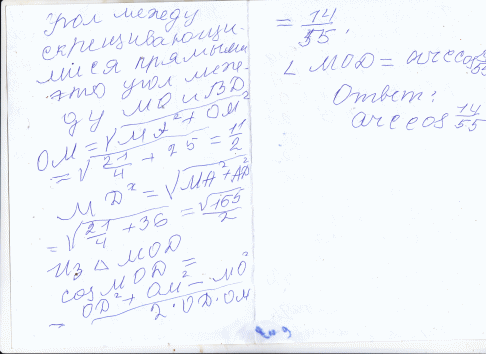 Угол между
скрещивающи-
мися прямыми
это угол меж-
ду MO и BD
OM = √MA² + OM²
= √21/4 + 25 = 11/2
MD² = √MA² + AD²
= √21/4 + 36 = √165/2
Из △ MOD
cos MOD =
= OD² + OM² - MD²/2·OD·OM
= 14/55.
∠ MOD = arccos
Ответ:
arccos 14/55